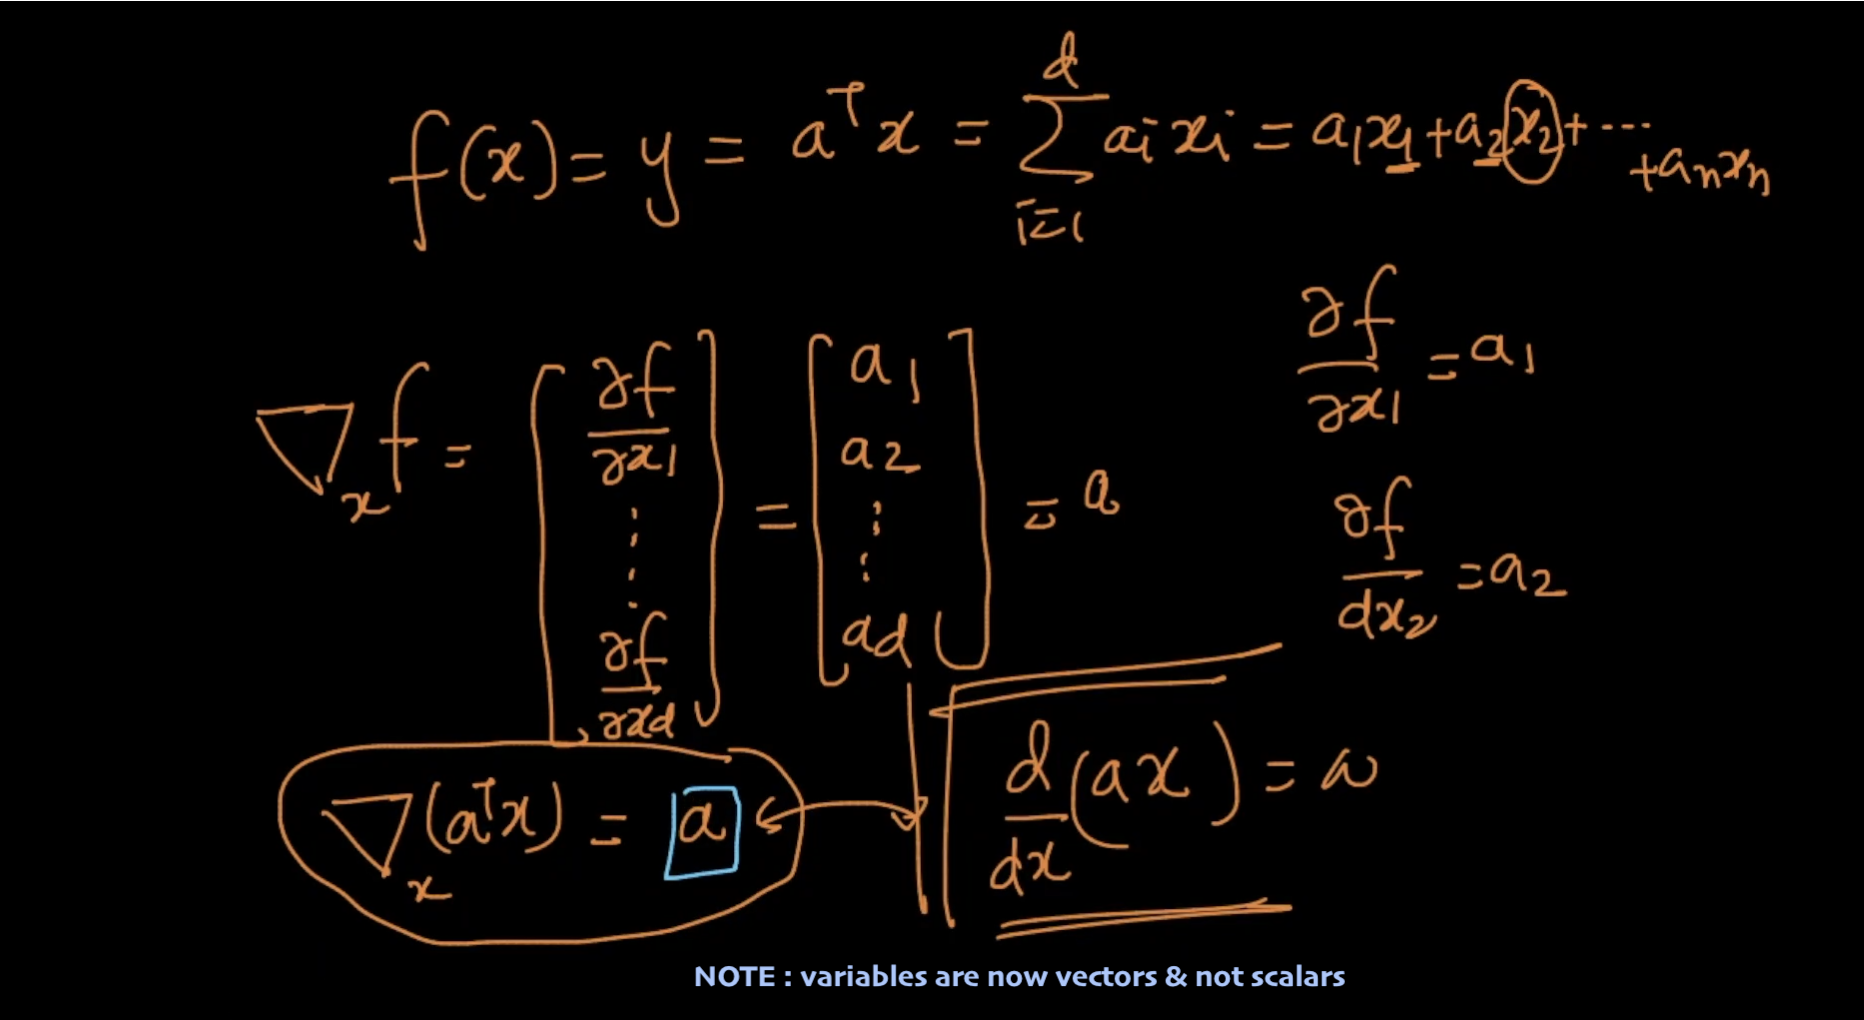 f(x) = y = aᵀx = ∑ᵢ₌₁ᵈ aᵢxᵢ = a₁x₁ + a₂x₂ + ⋯ + aₙxₙ
∇ₓf = [∂f/∂x₁ ⋮ ∂f/∂x_d] = [a₁ a₂ ⋮ a_d] = a
∂f/∂x₁ = a₁
∂f/dx₂ = a₂
∇ₓ(aᵀx) = a
d/dx (ax) = a
NOTE : variables are now vectors & not scalars